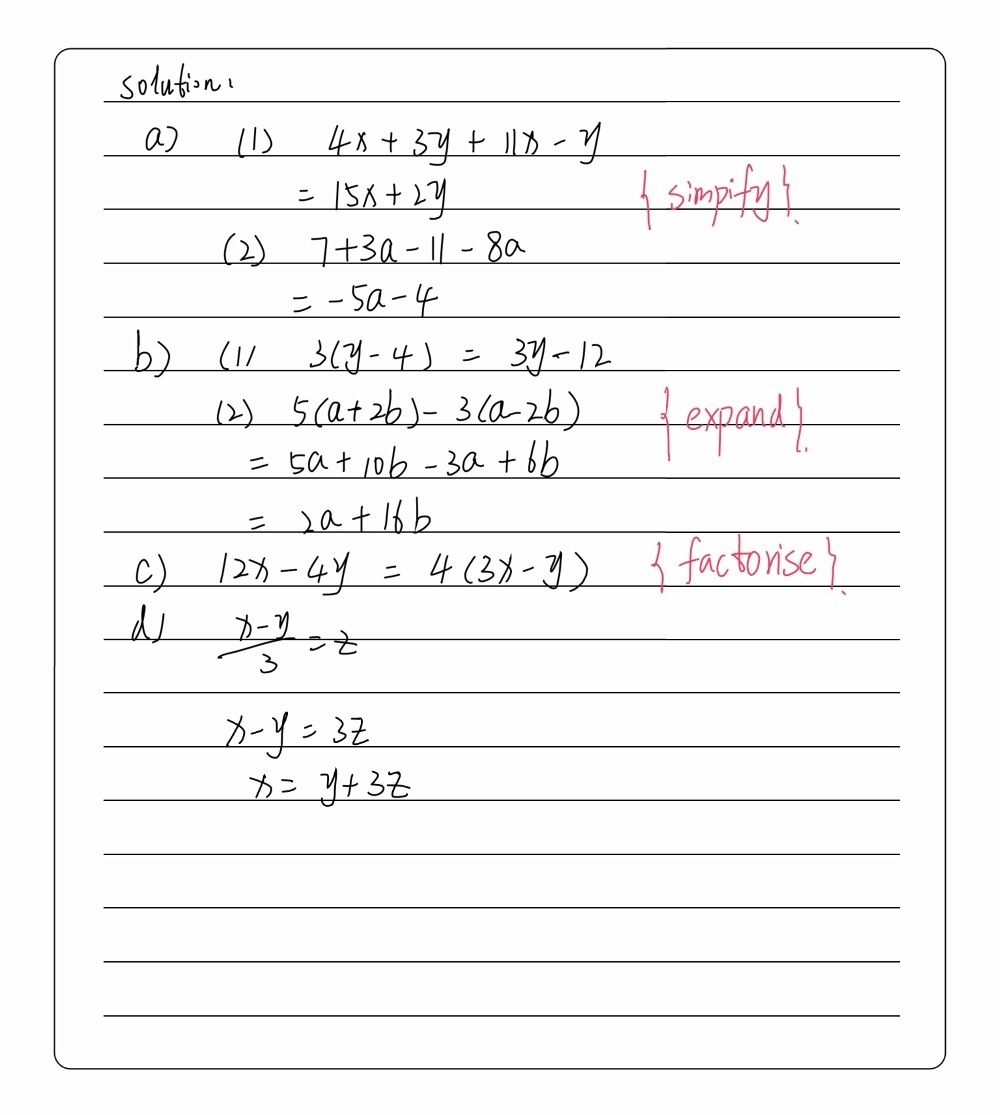 solution:
a) (1) 4x + 3y + 11x - y
= 15x + 2y {simpify}.
(2) 7+3a-11-8a
= -5a-4
b) (1) 3(y-4) = 3y-12
(2) 5(a+2b)-3(a-2b) {expand}.
= 5a+10b-3a+6b
= 2a+16b
c) 12x-4y = 4(3x-y) {factorise}.
d) x-y/3 = z
x-y = 3z
x = y+3z